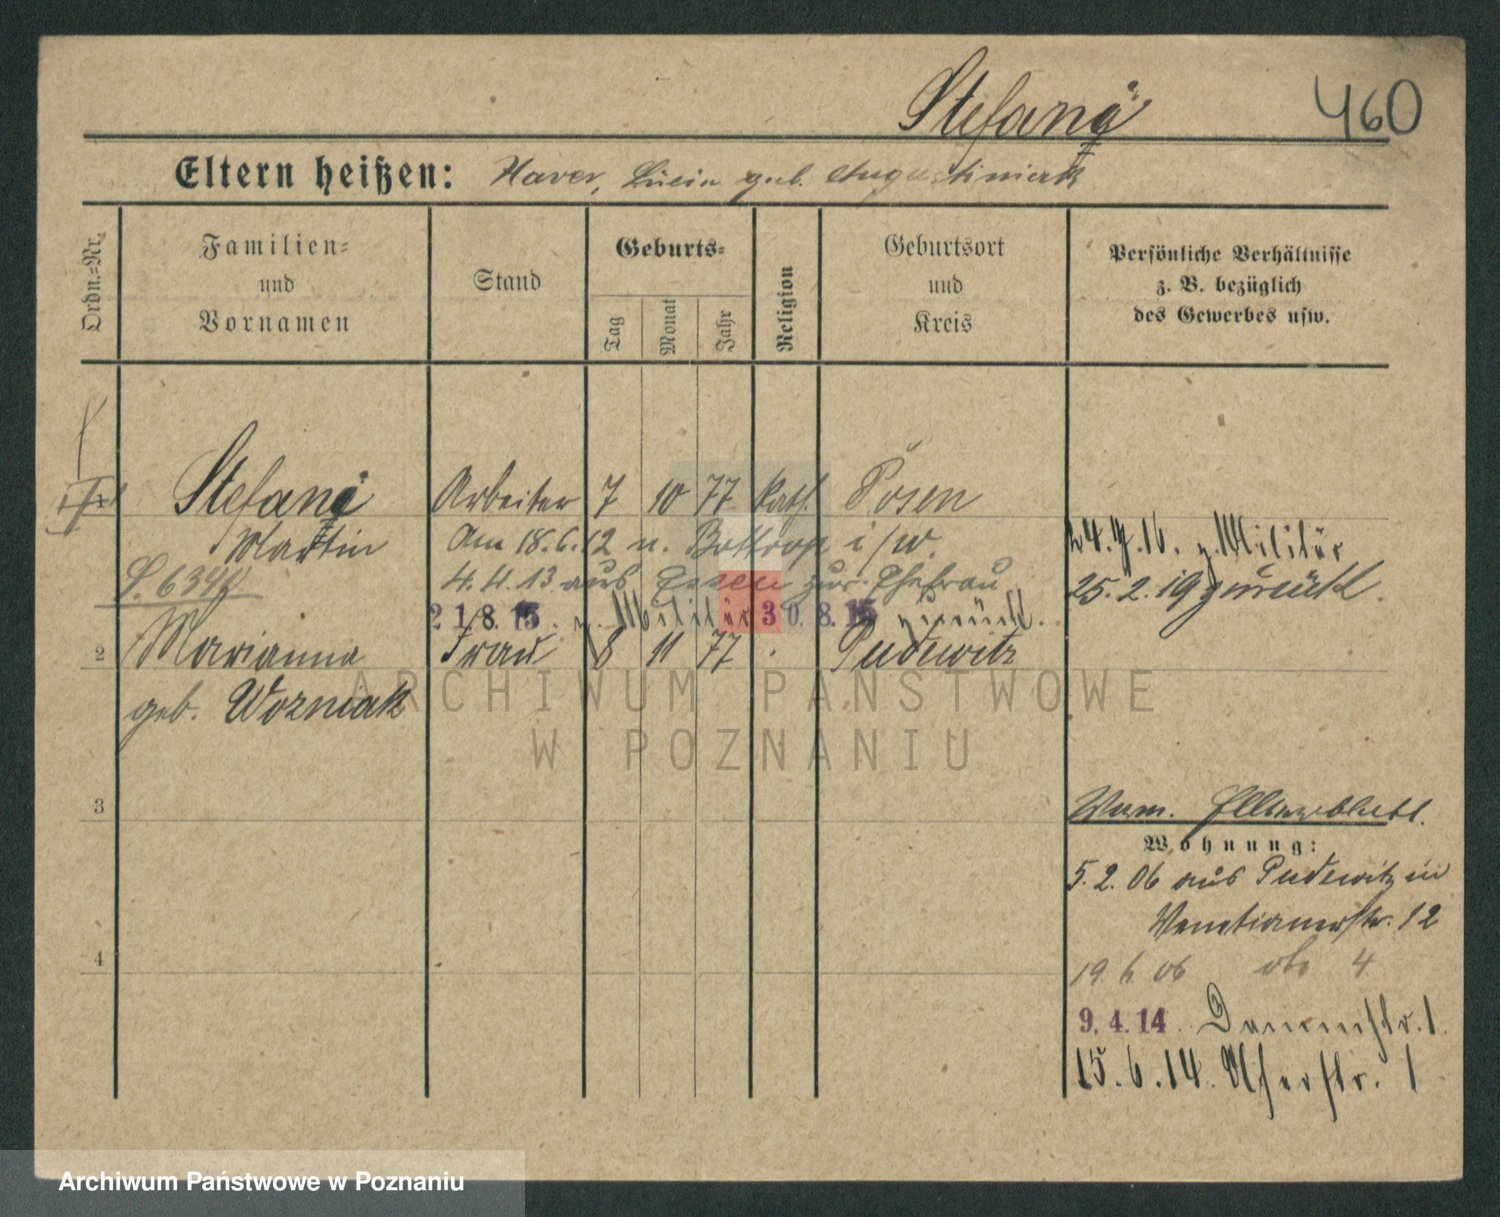 Stefanę
460
Eltern heißen: Xaver, Lucia geb. Augustiniak
Ordn.-Nr.
Familien- und Vornamen
Stand
Geburts-
Tag
Monat
Jahr
Religion
Geburtsort und Kreis
Persönliche Verhältnisse
z. B. bezüglich
des Gewerbes usw.
1
Stefanę Arbeiter 7 10 77 kath. Posen
Martin Am 18.6.12 n. Bottrop i/W.
24.7.16. z. Militär
4.4.13 aus Essen zur Ehefrau
25.2.19 zurück.
21.8.15. z. Militär 30.8.15 zurück.
2 Marianna Frau 8 11 77 . Pudewitz
geb. Wozniak
ARCHIWUM PAŃSTWOWE
W POZNANIU
3
Wohnung:
5.2.06 aus Pudewitz in
Venetianerstr. 12
4
19 6 06 4
9.4.14. Dammstr. 1.
15.6.14. Uferstr. 1
Archiwum Państwowe w Poznaniu